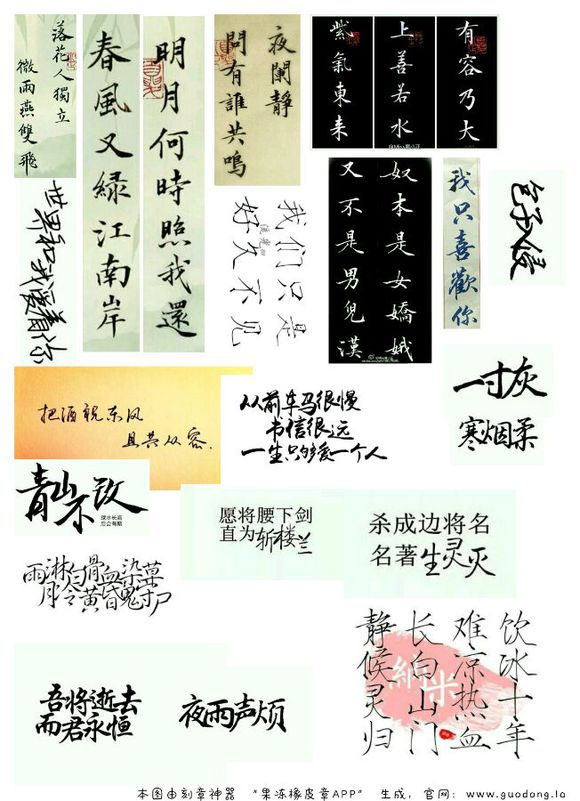 落花人獨立
微雨燕雙飛
明月何時照我還
春風又綠江南岸
夜闌靜
問有誰共鳴
有容乃大
上善若水
紫氣東来
奴本是女嬌娥
又不是男兒漢
我只喜歡你
世界和我爱着你
我们只是
好久不见
把酒祝东风
且共从容.
从前车马很慢
书信很远
一生只够爱一个人
一寸灰
寒烟柔
青山不改
绿水长流
后会有期
愿将腰下剑
直为斩楼兰
杀成边将名
名著生灵灭
雨淋白骨血染草
月冷黄昏鬼守尸
饮冰十年
难凉热血
长白山门
静候灵归
吾将逝去
而君永恒
夜雨声烦
本图由刻章神器 “果冻橡皮章APP” 生成，官网：www.guodong.la